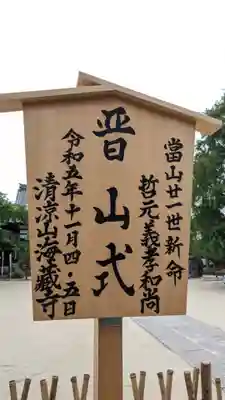 當山廿一世新命
哲元義孝和尚
晋山式
令和五年十一月四・五日
清凉山海藏寺